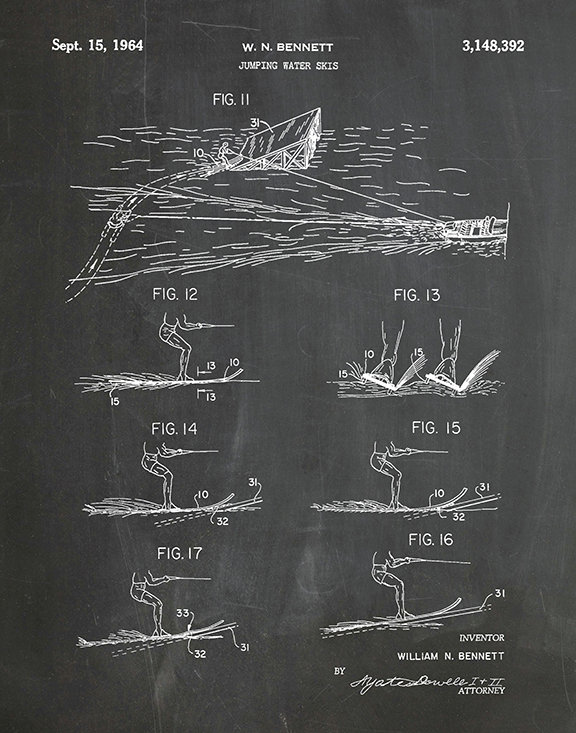 Sept. 15, 1964 W. N. BENNETT 3,148,392
JUMPING WATER SKIS
FIG. 11
31
10
FIG. 12 FIG. 13
13 10
15 13
10 15
15
FIG. 14 FIG. 15
10 31
32
10 31
32
FIG. 17 FIG. 16
33
32 31
31
INVENTOR
WILLIAM N. BENNETT
BY
ATTORNEY